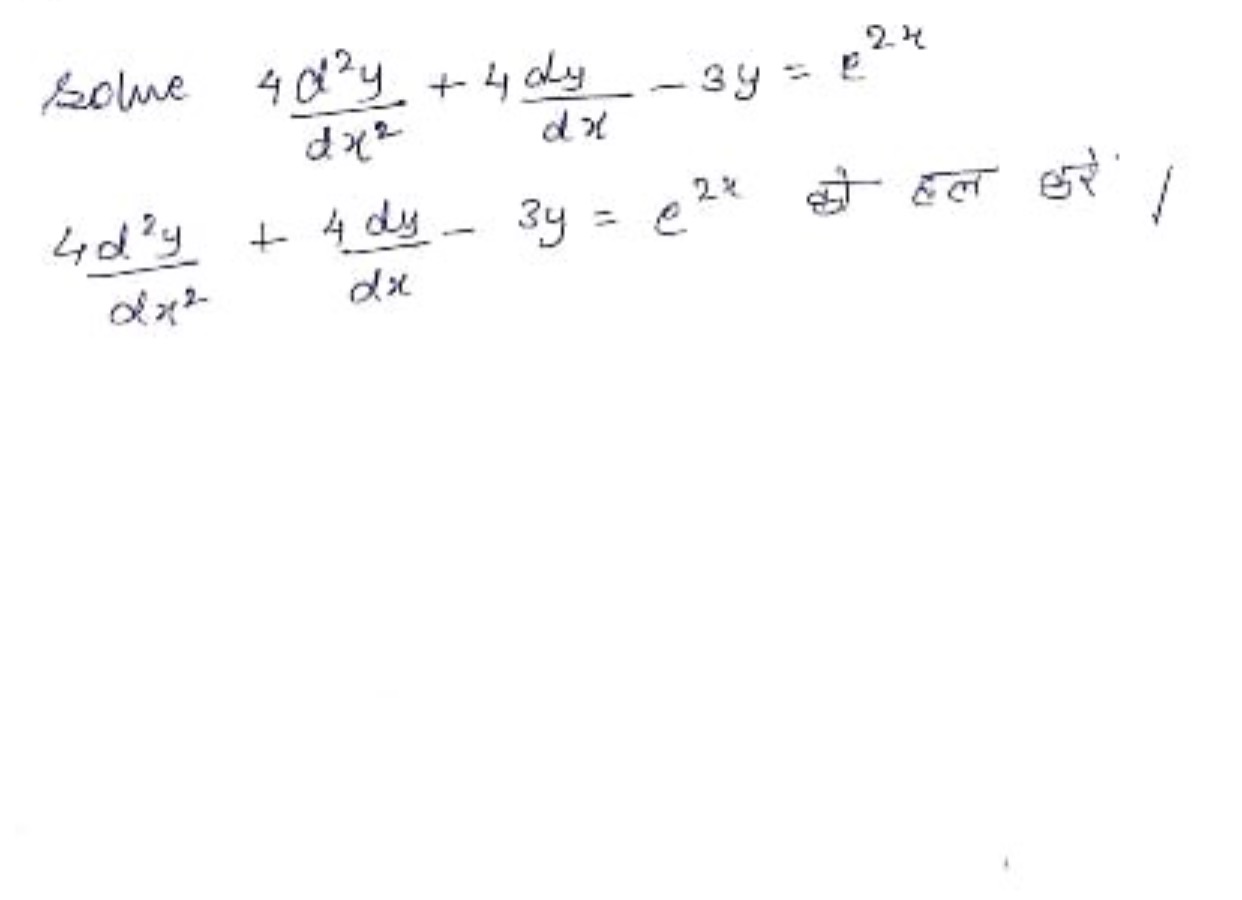 Solve 4d²y/dx² + 4dy/dx - 3y = e^2x
4d²y/dx² + 4dy/dx - 3y = e^2x को हल करें ।